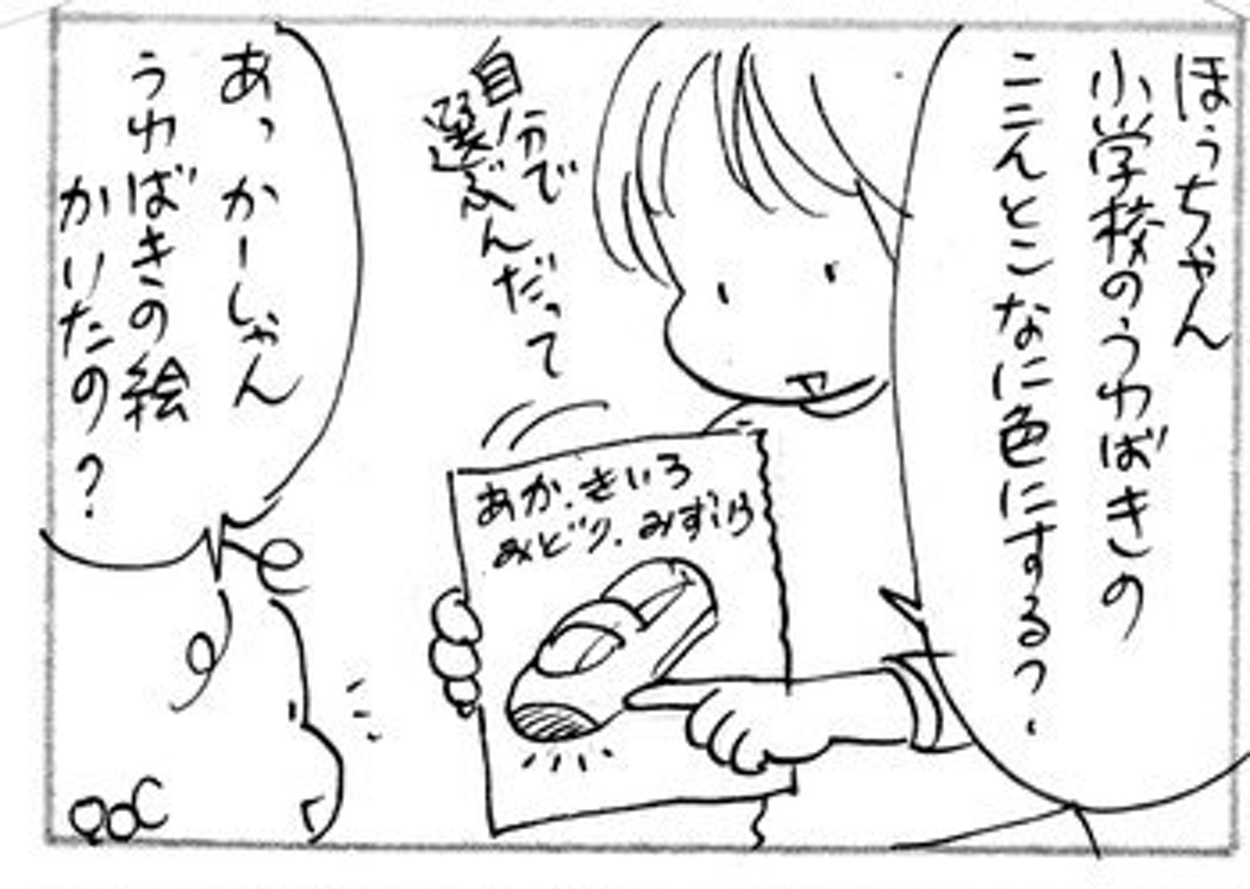 ほぅちゃん
小学校のうわばきの
ここんとこなに色にする?
自分で
選ぶんだって
あか、きいろ
みどり、みずいろ
あっかーしゃん
うわばきの絵
かいたの?